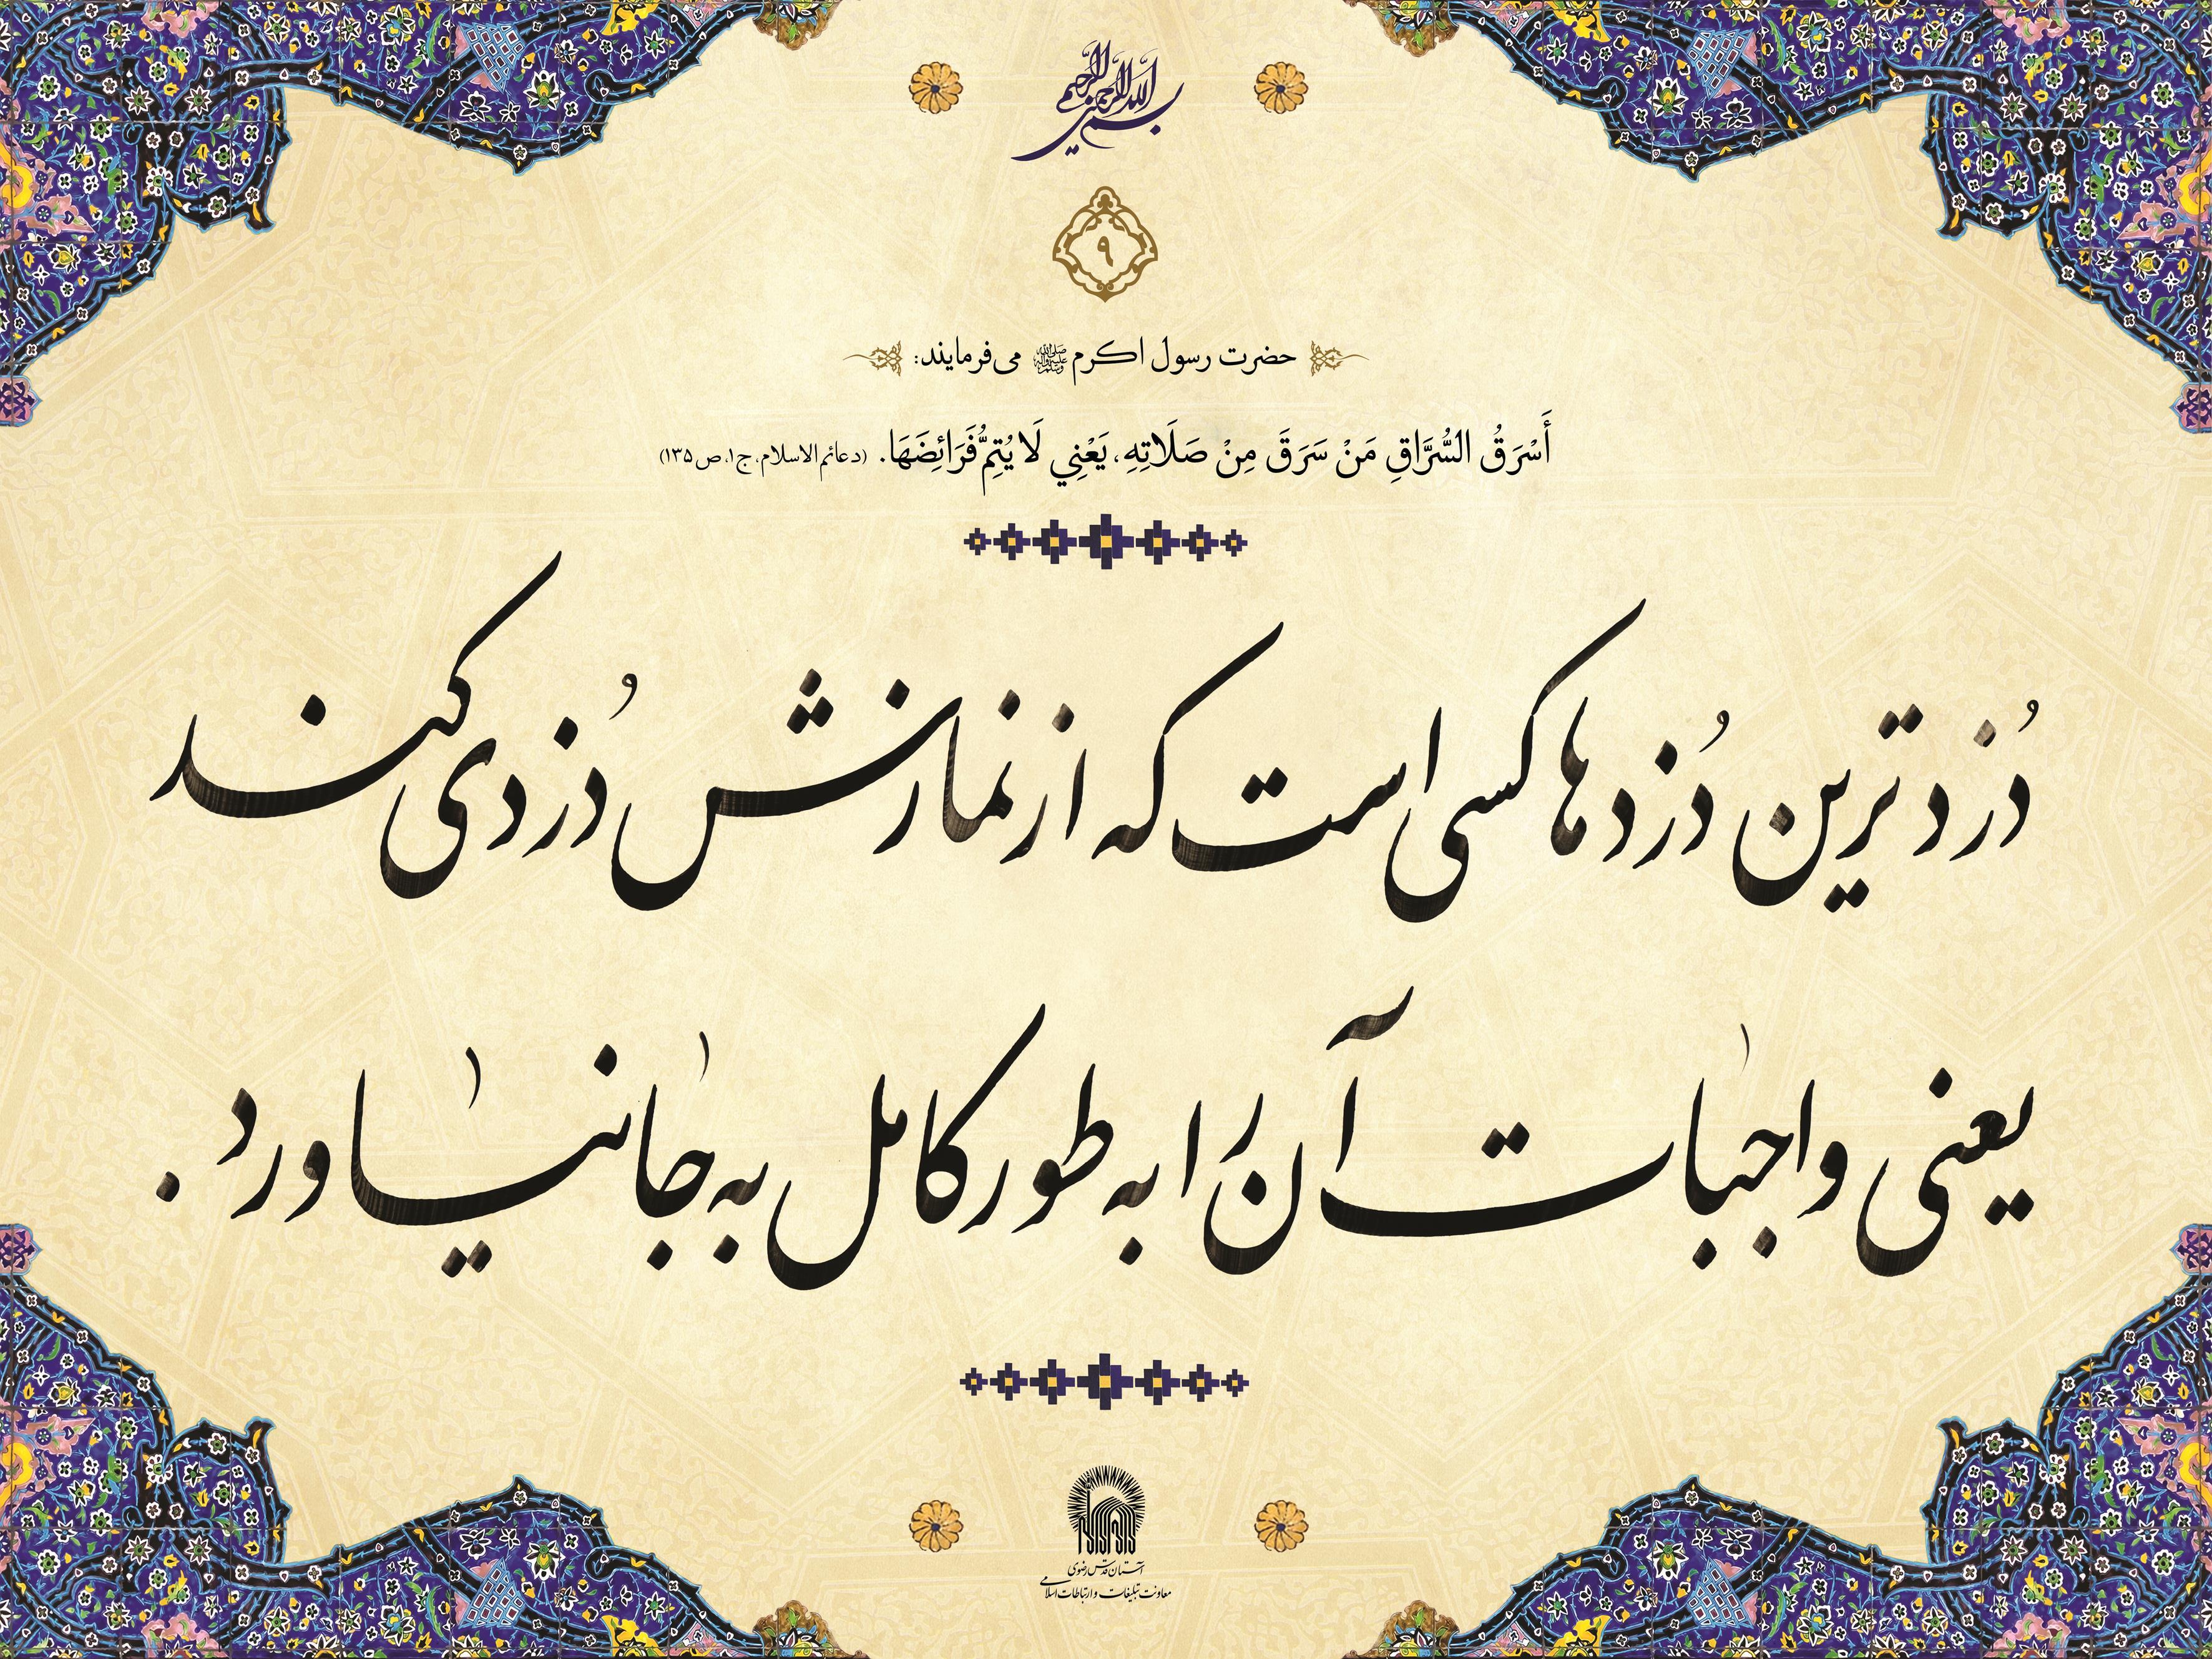 بسم الله الرحمن الرحیم
۹
حضرت رسول اکرم ﷺ می‌فرمایند:
أَسْرَقُ السُّرَّاقِ مَنْ سَرَقَ مِنْ صَلَاتِهِ، يَعْنِي لَا يُتِمُّ فَرَائِضَهَا. (دعائم الاسلام، ج۱، ص۱۳۵)
دُزدترین دُزدها کسی است که از نمازش دُزدی کند
یعنی واجبات آن را به طور کامل به جا نیاورد.
آستان قدس رضوی
معاونت تبلیغات و ارتباطات اسلامی